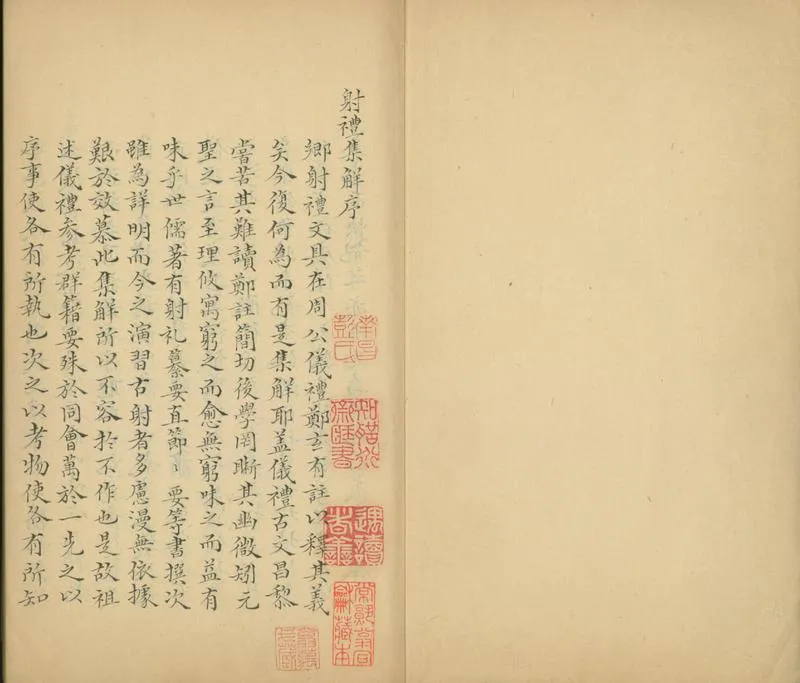 射禮集解序
鄉射禮文具在周公儀禮鄭玄有註以釋其義
矣今復何為而有是集解耶盖儀禮古文昌黎
嘗苦其難讀鄭註簡切後學罔晰其幽微矧元
聖之言至理攸寓窮之而愈無窮味之而益有
味乎世儒著有射礼纂要直節〻要等書撰次
雖為詳明而今之演習古射者多慮漫無依據
艱於效慕此集解所以不容扵不作也是故祖
述儀禮參考群籍要殊於同會萬於一先之以
序事使各有所執也次之以考物使各有所知
南昌彭氏
知聖道齋藏書
遇讀者善
常熟翁同龢藏本